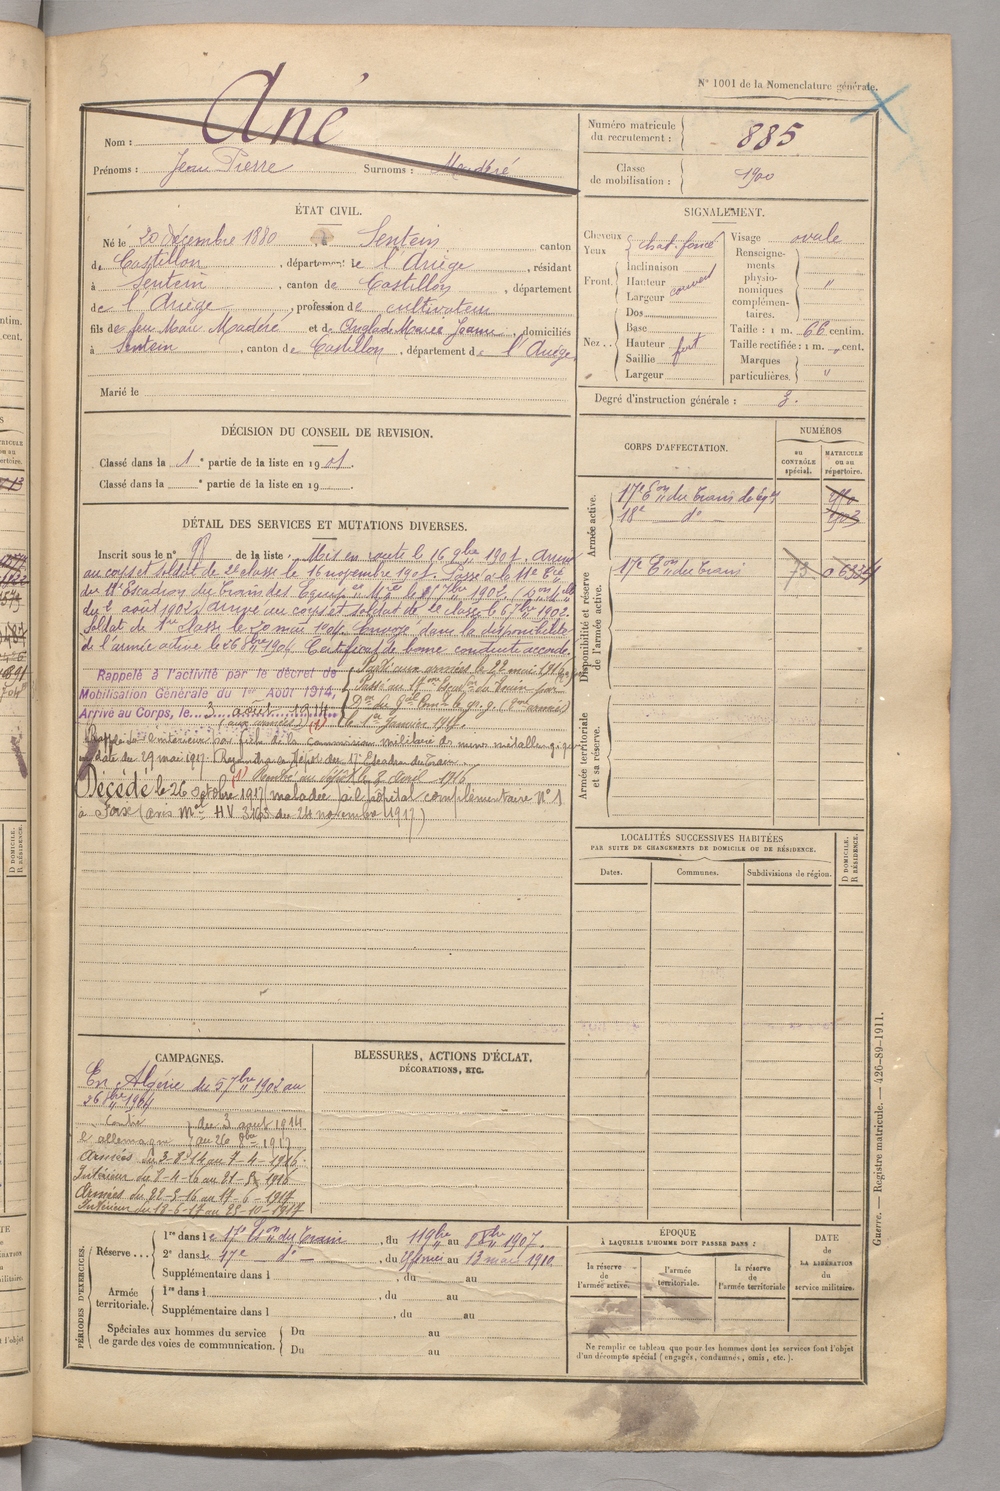 N° 1001 de la Nomenclature générale.
Nom : Ané
Prénoms : Jean Pierre Surnoms : Madéré
Numéro matricule du recrutement : 885
Classe de mobilisation : 1900
ÉTAT CIVIL.
Né le 20 Décembre 1880 à Sentein, canton
de Castillon, département de l'Ariège, résidant
à Sentein, canton de Castillon, département
de l'Ariège, profession de cultivateur
fils de feu Marc Madéré et de Anglade Marie Jeanne, domiciliés
à Sentein, canton de Castillon, département de l'Ariège.
Marié le
SIGNALEMENT.
Cheveux chat. foncé
Yeux
Front. Inclinaison
Hauteur couvert
Largeur
Nez .. Dos
Base
Hauteur fort
Saillie
Largeur
Visage ovale
Renseignements physionomiques complémentaires. "
Taille : 1 m. 66 centim.
Taille rectifiée : 1 m. " cent.
Marques particulières. "
Degré d'instruction générale : 3.
DÉCISION DU CONSEIL DE REVISION.
Classé dans la 1e partie de la liste en 1901.
Classé dans la e partie de la liste en 19 .
CORPS D'AFFECTATION.
NUMÉROS
au CONTRÔLE spécial.
MATRICULE ou au répertoire.
Armée active.
17e Eon du Train des Eq.
18e do
Disponibilité et réserve de l'armée active.
17e Eon du Train 73
Armée territoriale et sa réserve.
DÉTAIL DES SERVICES ET MUTATIONS DIVERSES.
Inscrit sous le n° 98 de la liste. Mis en route le 16 9bre 1901. Arrivé
au corps et soldat de 2e classe le 16 novembre 1901. Passé à la 11e Cie
du Escadron du train des Equip. 7bre 1902.
du 2 août 1902) Arrivé au corps et soldat de 2e classe le 6 7bre 1902.
Soldat de 1re classe le 20 mai 1904. Envoyé dans la disponibilité
de l'armée active le 26 1904. Certificat de bonne conduite accordé.
Rappelé à l'activité par le décret de
Mobilisation Générale du 1er Août 1914,
Arrivé au Corps, le 3 août 1914
(aux armées) (1)
Parti aux armées le 22 mai 1916
Passé au 17me Escon du Train
le 1er Janvier 1917.
Rappelé à l'intérieur de la Commission militaire de mines métallurgiques
en date du 29 mai 1917. Rejoindra dépôt du 17 Escadron du Train
(1) Rentré au dépôt le 8 avril 1916
Décédé le 26 octobre 1917 (maladie) à l'hôpital complémentaire N° 1
à Foix (avis Mel HV 3163 du 24 novembre 1917)
LOCALITÉS SUCCESSIVES HABITÉES
PAR SUITE DE CHANGEMENTS DE DOMICILE OU DE RÉSIDENCE.
Dates.
Communes.
Subdivisions de région.
D DOMICILE.
R RÉSIDENCE.
CAMPAGNES.
En Algérie du 5 7bre 1902 au
26 1904
Contre l'allemagne du 3 août 1914
au 26 8bre 1917
Armées du 3-8-14 au 7-4-1916.
Intérieur du 8-4-16 au 21-5-1916
Armées du 22-5-16 au 17-6-1917
Intérieur du 18-6-17 au 25-10-1917
BLESSURES, ACTIONS D'ÉCLAT,
DÉCORATIONS, ETC.
PÉRIODES D'EXERCICES.
Réserve ... 1re dans le 17e Eon du Train, du 11 9bre au 1907.
2e dans le 17e do, du au 13 mars 1910.
Supplémentaire dans l , du au
Armée territoriale. 1re dans l , du au
Supplémentaire dans l , du au
Spéciales aux hommes du service de garde des voies de communication. Du au
Du au
ÉPOQUE
À LAQUELLE L'HOMME DOIT PASSER DANS :
la réserve de l'armée active.
l'armée territoriale.
la réserve de l'armée territoriale
DATE de LA LIBÉRATION du service militaire.
Ne remplir ce tableau que pour les hommes dont les services font l'objet
d'un décompte spécial (engagés, condamnés, omis, etc.).
Guerre. — Registre matricule. — 426-89-1911.